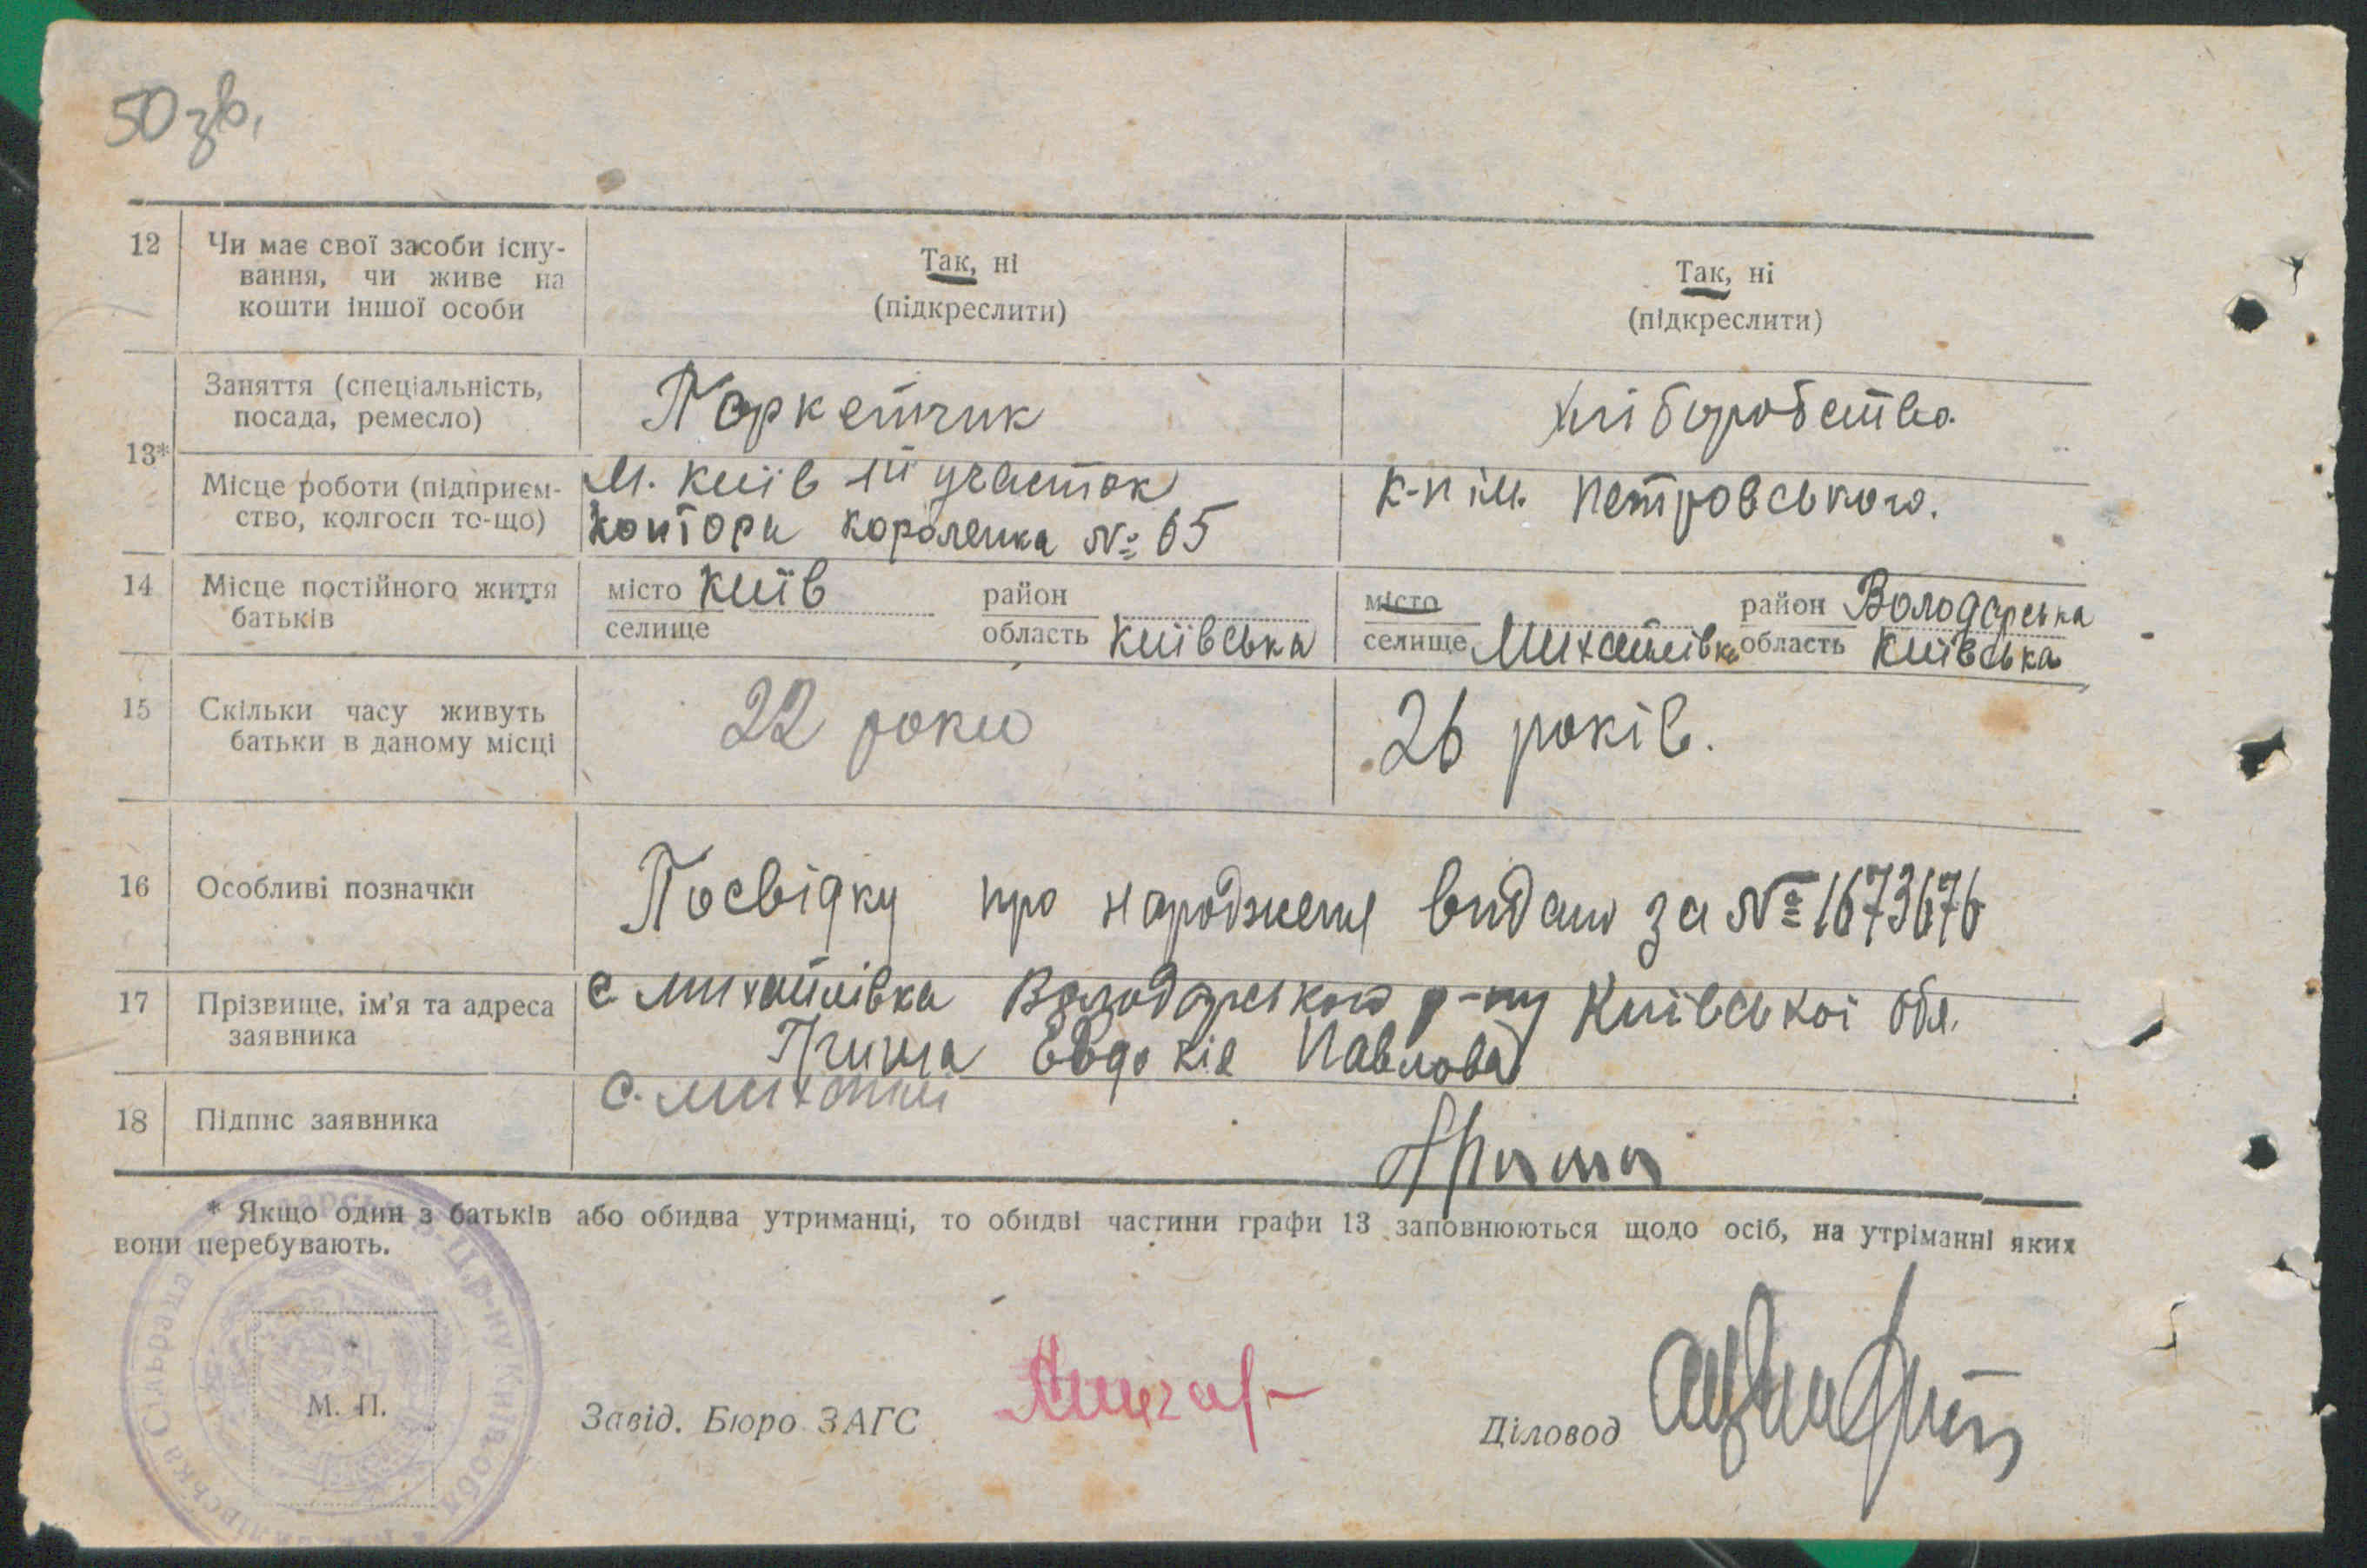 50 зв.
12 Чи має свої засоби існу-
вання, чи живе на
кошти іншої особи
Так, ні
(підкреслити)
Так, ні
(підкреслити)
13*
Заняття (спеціальність,
посада, ремесло)
Паркетчик
хліборобство
Місце роботи (підприєм-
ство, колгосп то-що)
М. Київ 1й участок
контори Короленка № 65
к-п ім. Петровського.
14 Місце постійного життя
батьків
місто Київ район
селище область Київська
місто район Володарська
селище Михайлівка область Київська
15 Скільки часу живуть
батьки в даному місці
22 роки
26 років.
16 Особливі позначки
Посвідку про народження видано за № 1673676
17 Прізвище, ім'я та адреса
заявника
с Михайлівка Володарського р-ну Київської обл.
Евдокія Павлова
18 Підпис заявника
с. Михайлі
* Якщо один з батьків або обидва утриманці, то обидві частини графи 13 заповнюються щодо осіб, на утріманні яких
вони перебувають.
М. П.
Завід. Бюро ЗАГС
Діловод